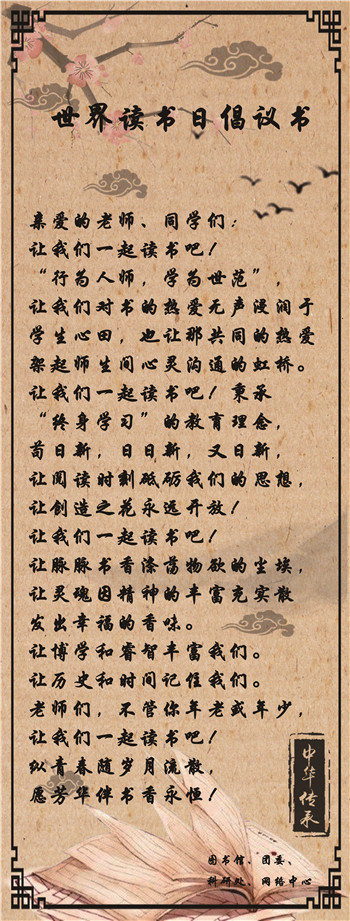 世界读书日倡议书
亲爱的老师、同学们：
让我们一起读书吧！
“行为人师，学为世范”，
让我们对书的热爱无声浸润于
学生心田，也让那共同的热爱
架起师生间心灵沟通的虹桥。
让我们一起读书吧！秉承
“终身学习”的教育理念，
苟日新，日日新，又日新，
让阅读时刻砥砺我们的思想，
让创造之花永远开放！
让我们一起读书吧！
让脉脉书香涤荡物欲的尘埃，
让灵魂因精神的丰富充实散
发出幸福的香味。
让博学和睿智丰富我们。
让历史和时间记住我们。
老师们，不管你年老或年少，
让我们一起读书吧！
纵青春随岁月流散，
愿芳华伴书香永恒！
中华传承
图书馆、团委、
科研处、网络中心